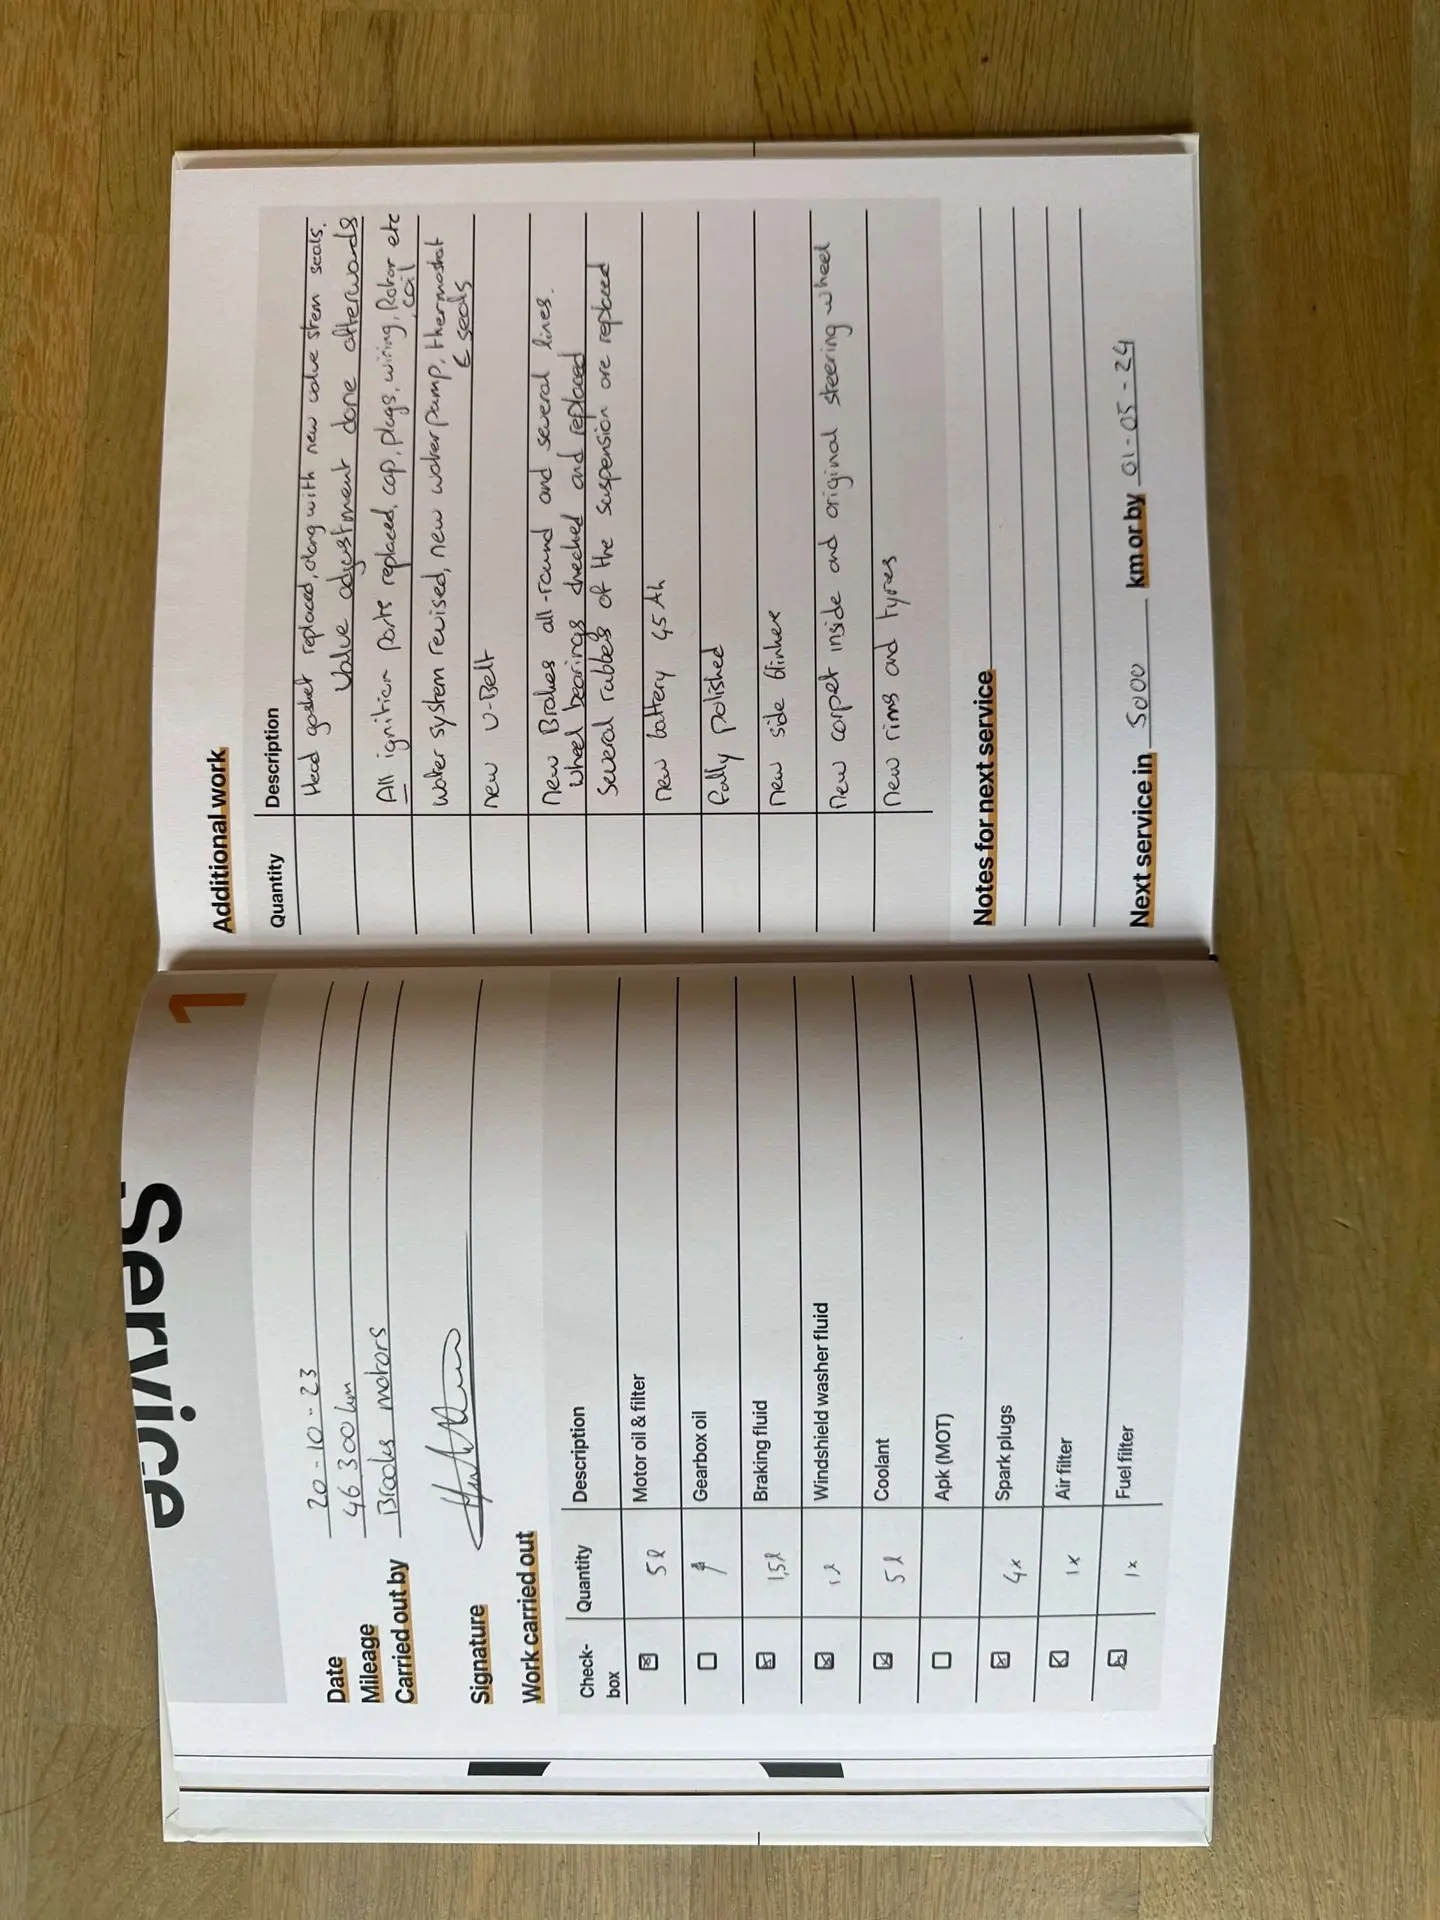 Service 1
Date 20-10-23
Mileage 46 300 km
Carried out by Brooks motors
Signature
Work carried out
Check-box Quantity Description
5l Motor oil & filter
Gearbox oil
1,5l Braking fluid
1l Windshield washer fluid
5l Coolant
Apk (MOT)
4x Spark plugs
1x Air filter
1x Fuel filter
Additional work
Quantity Description
Head gasket replaced, along with new valve stem seals.
Valve adjustment done afterwards
All ignition parts replaced, cap, plugs, wiring, Rotor etc
, coil
Water system revised, new waterpump, thermostat
& seals
new V-Belt
New Brakes all-round and several lines.
Wheel bearings checked and replaced
Several rubbers of the suspension are replaced
new battery 45 Ah
fully polished
new side blinkers
new carpet inside and original steering wheel
new rims and tyres
Notes for next service
Next service in 5000 km or by 01-05-24